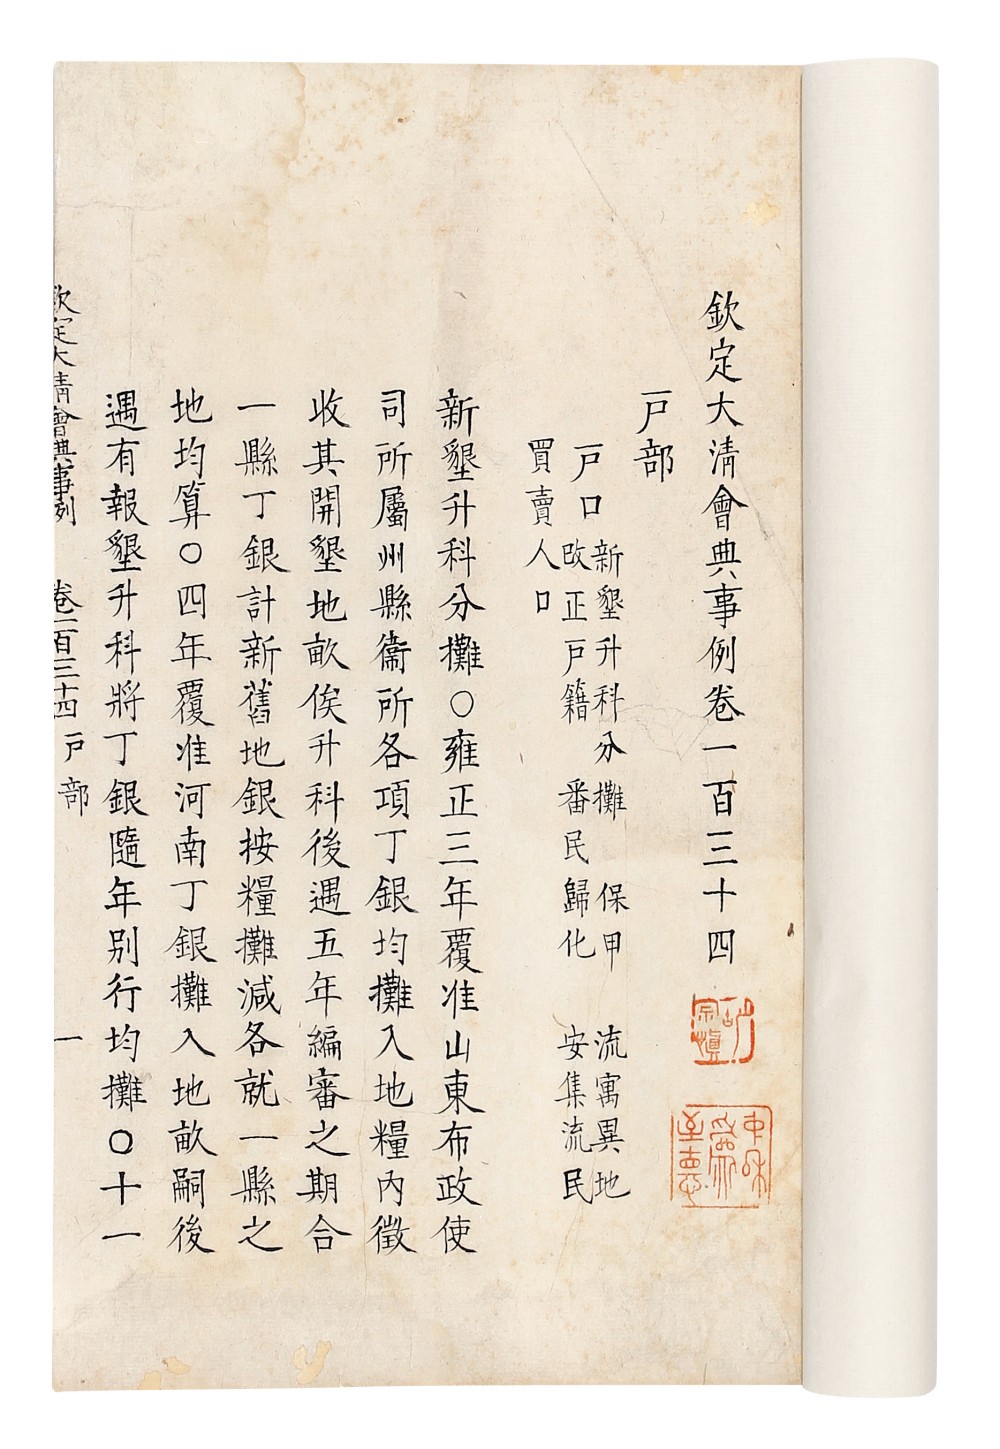 欽定大淸會典事例卷一百三十四
戶部
戶口新墾升科分攤 保甲 流寓異地
改正戶籍 番民歸化 安集流民
買賣人口
新墾升科分攤○雍正三年覆准山東布政使
司所屬州縣衞所各項丁銀均攤入地糧內徵
收其開墾地畝俟升科後遇五年編審之期合
一縣丁銀計新舊地銀按糧攤減各就一縣之
地均算○四年覆准河南丁銀攤入地畝嗣後
遇有報墾升科將丁銀隨年別行均攤○十一
欽定大淸會典事例 卷一百三十四 戶部 一